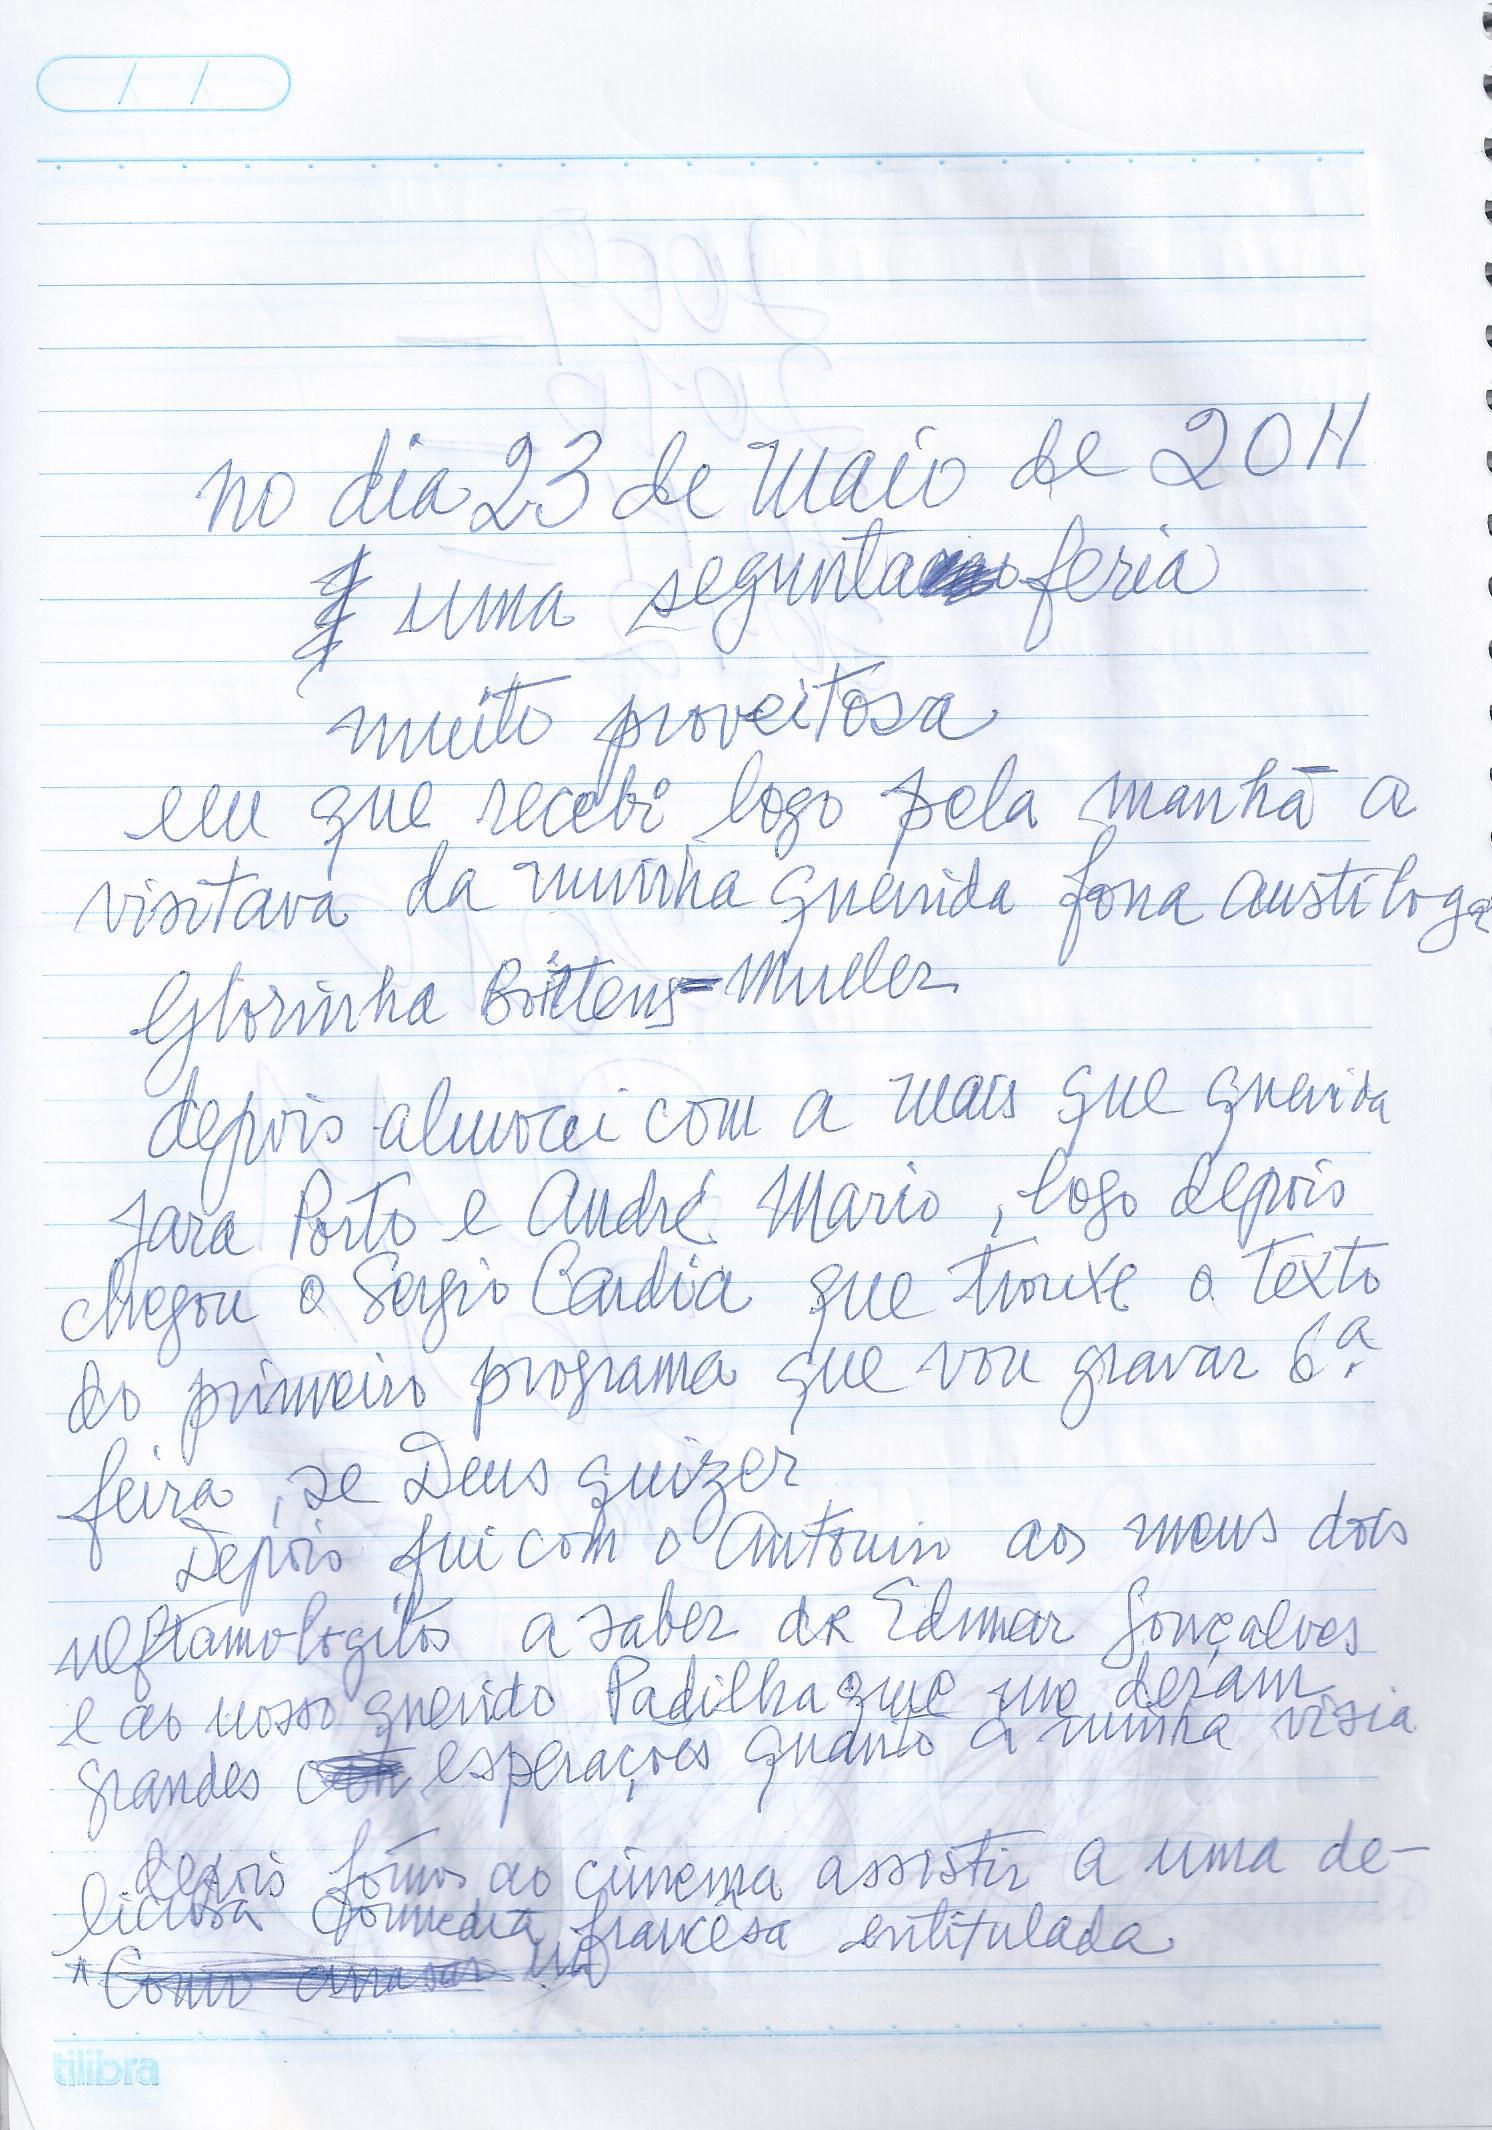 no dia 23 de Maio de 2011
uma segunta feria
muito proveitosa
em que recebi logo pela manhã a
visitava da minha querida fona austiloga
Glorinha Bɵittens-Muller
depois almocei com a mais que querida
Jara Porto e André Mario, logo depois
chegou o Sergio Cardia que trouxe o texto
do primeiro programa que vou gravar 6ª
feira, se Deus quizer
Depois fui com o Antonio aos meus dois
neftamologitos a saber dr Edmar Gonçalves
e ao nosso querido Padilha que me deram
grandes esperações quanto a minha visia
depois fomos ao cinema assistir a uma de-
liciosa Commedia francêsa entitulada
"Como arrasar um
tilibra